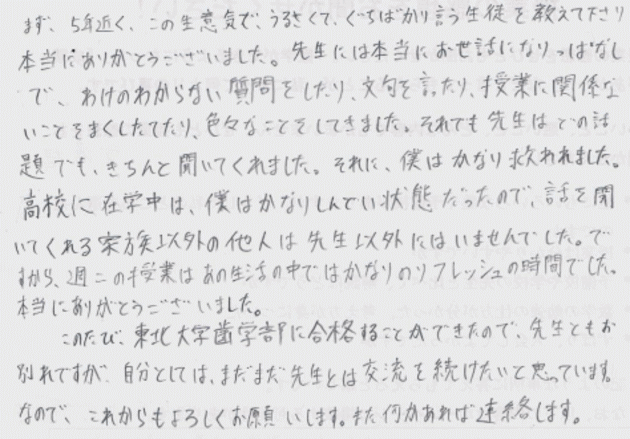 まず、5年近く、この生意気で、うるさくて、ぐちばかり言う生徒を教えて下さり
本当にありがとうございました。先生には本当にお世話になりっぱなし
で、わけのわからない質問をしたり、文句を言ったり、授業に関係な
いことをまくしたてたり、色々なことをしてきました。それでも先生はどの話
題でも、きちんと聞いてくれました。それに、僕はかなり救われました。
高校に在学中は、僕はかなりしんどい状態だったので、話を聞
いてくれる家族以外の他人は先生以外にはいませんでした。で
すから、週二の授業はあの生活の中ではかなりのリフレッシュの時間でした。
本当にありがとうございました。
このたび、東北大学歯学部に合格することができたので、先生ともお
別れですが、自分としては、まだまだ先生とは交流を続けたいと思っています。
なので、これからもよろしくお願いします。また何かあれば連絡します。